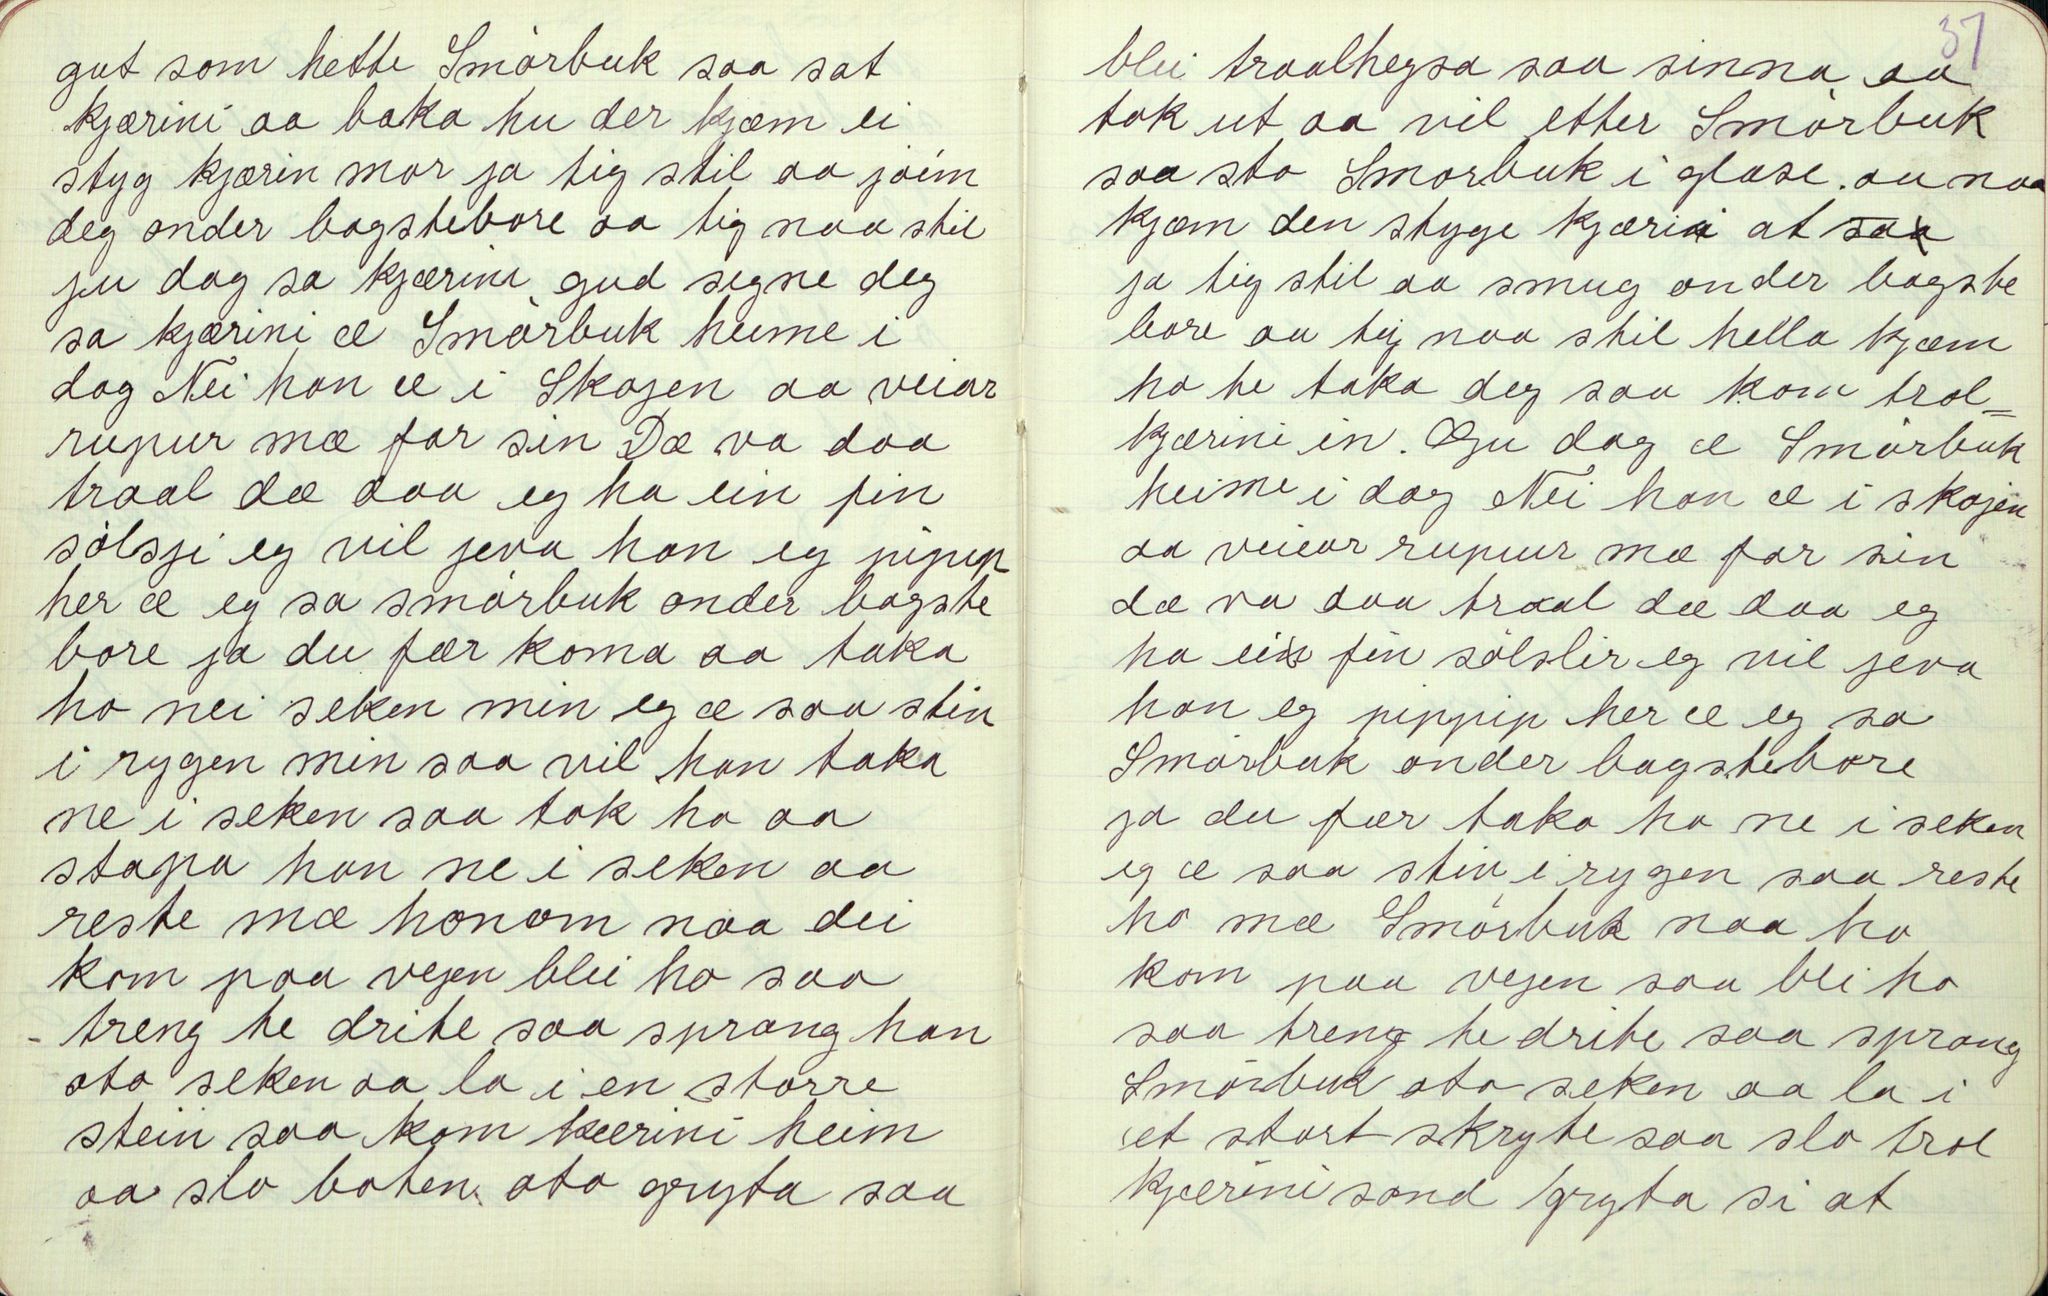 gut som hette Smórbuk saa sat
kjærini aa baka hu der kjæm ei
styg kjærin mor ja tig stil aa jöim
deg onder bagstebore aa tig naa stil
ju dag sa kjærini gud segne deg
sa kjærini æ Smórbuk heime i
dag Nei han æ i Skogen aa veiar
rupur mæ far sin Dæ va daa
traal dæ daa eg ha ein fin
sólsji eg vil jeva han eg pippip
her æ eg sa smórbuk onder bagste
bore ja du fær koma aa taka
ho nei seken min eg æ saa stin
i rygen min saa vil han taka
ne i seken saa tok ho aa
stapa han ne i seken aa
reste mæ honom naa dei
kom paa vejen blei ho saa
treng te drite saa sprang han
oto seken aa la i en storre
stein saa kom kærini heim
aa slo boten oto gryta saa
37
blei traalhegsa saa sinna aa
tok ut aa vil etter Smórbuk
saa sto Smorbuk i glase. au naa
kjæm den styge kjærini at saa
ja tig stil aa smug onder bagste
bore aa tig naa stil hella kjæm
ho te taka deg saa kom trol=
kjærini in. Gu dag æ Smórbuk
heime i dag Nei han æ i skojen
aa veiear rupuur mæ far sin
dæ va daa traal dæ daa eg
ha ein fin sólslir eg vil jeva
han eg pippip her æ eg sa
Smórbuk onder bagstebore
ja du fær taka ho ne i seken
eg æ saa stin i rygen saa reste
ho mæ Smórbuk naa ho
kom paa vejen saa blei ho
saa treng te drite saa sprang
Smórbuk oto seken aa la i
et stort skryte saa slo trol
kjærini sond gryta si at